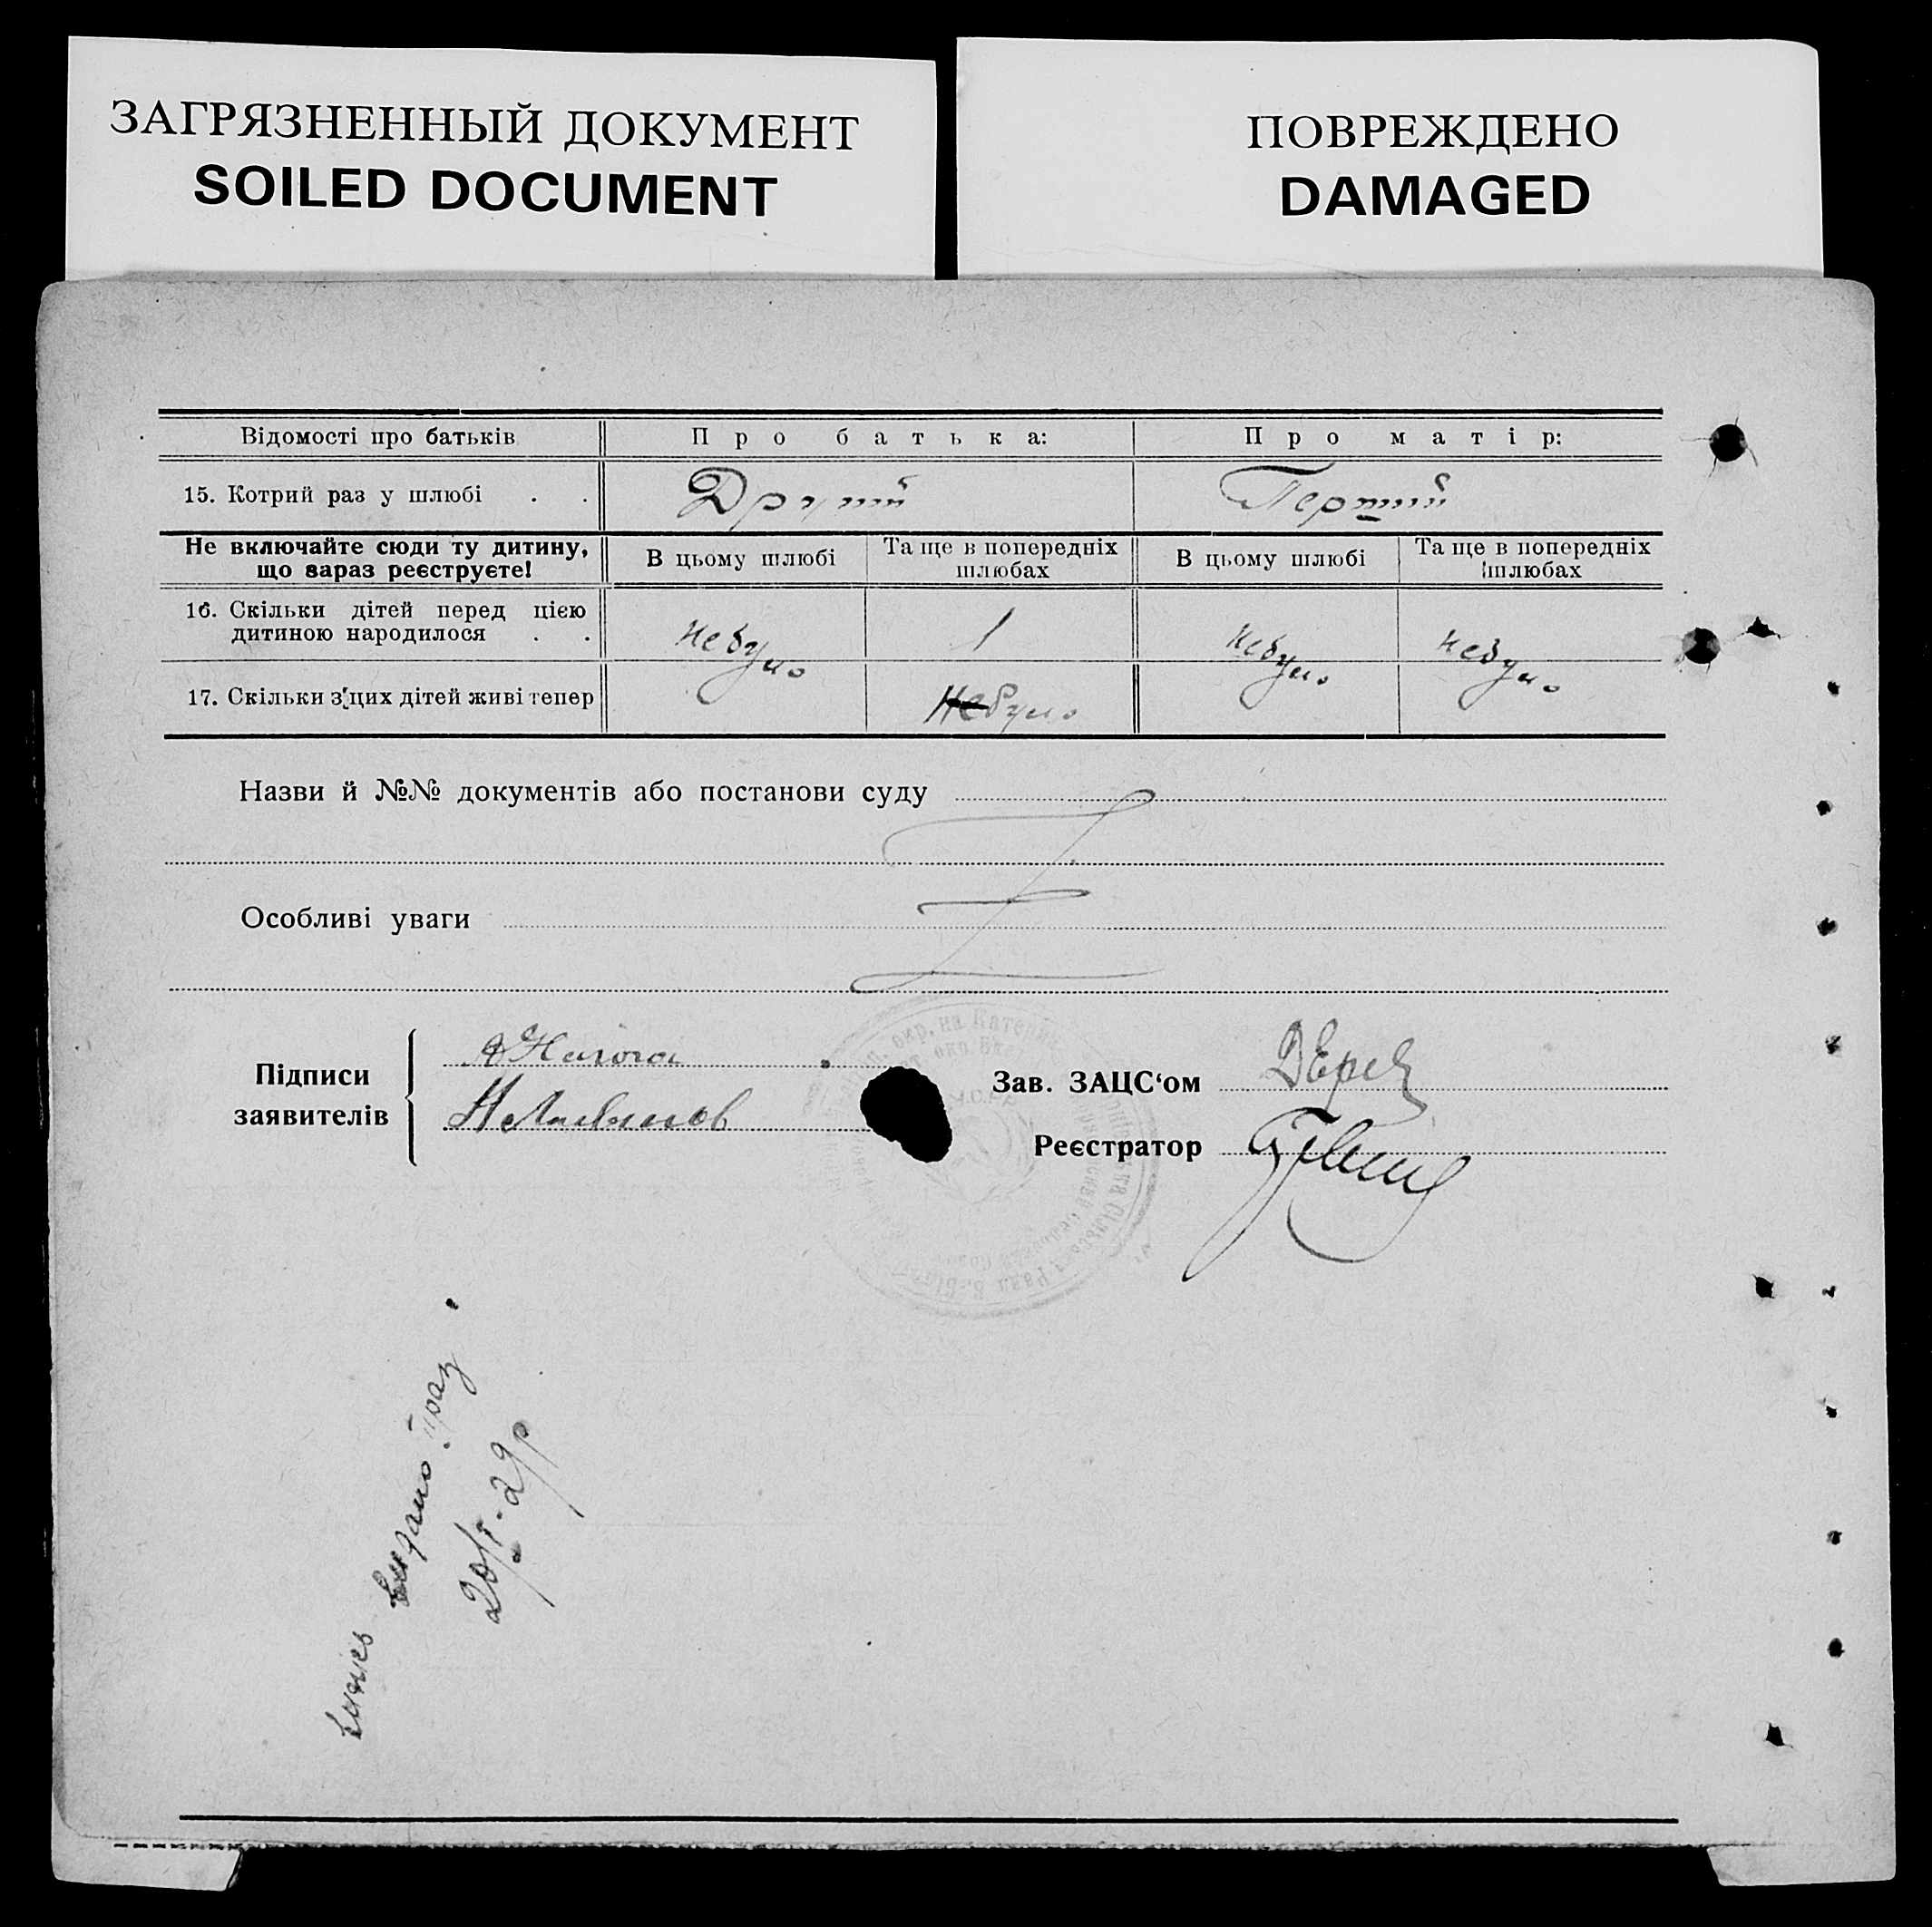 ЗАГРЯЗНЕННЫЙ ДОКУМЕНТ
SOILED DOCUMENT
ПОВРЕЖДЕНО
DAMAGED
Відомості про батьків Про батька: Про матір:
15. Котрий раз у шлюбі . . Другий Перший
Не включайте сюди ту дитину, що зараз реєструєте! В цьому шлюбі Та ще в попередніх шлюбах В цьому шлюбі Та ще в попередніх шлюбах
16. Скільки дітей перед цією дитиною народилося . . Небуло 1 Небуло Небуло
17. Скільки з цих дітей живі тепер Небуло
Назви й №№ документів або постанови суду
Особливі уваги
Підписи заявителів
Зав. ЗАЦС‘ом
Реєстратор
видано
20/ 29р